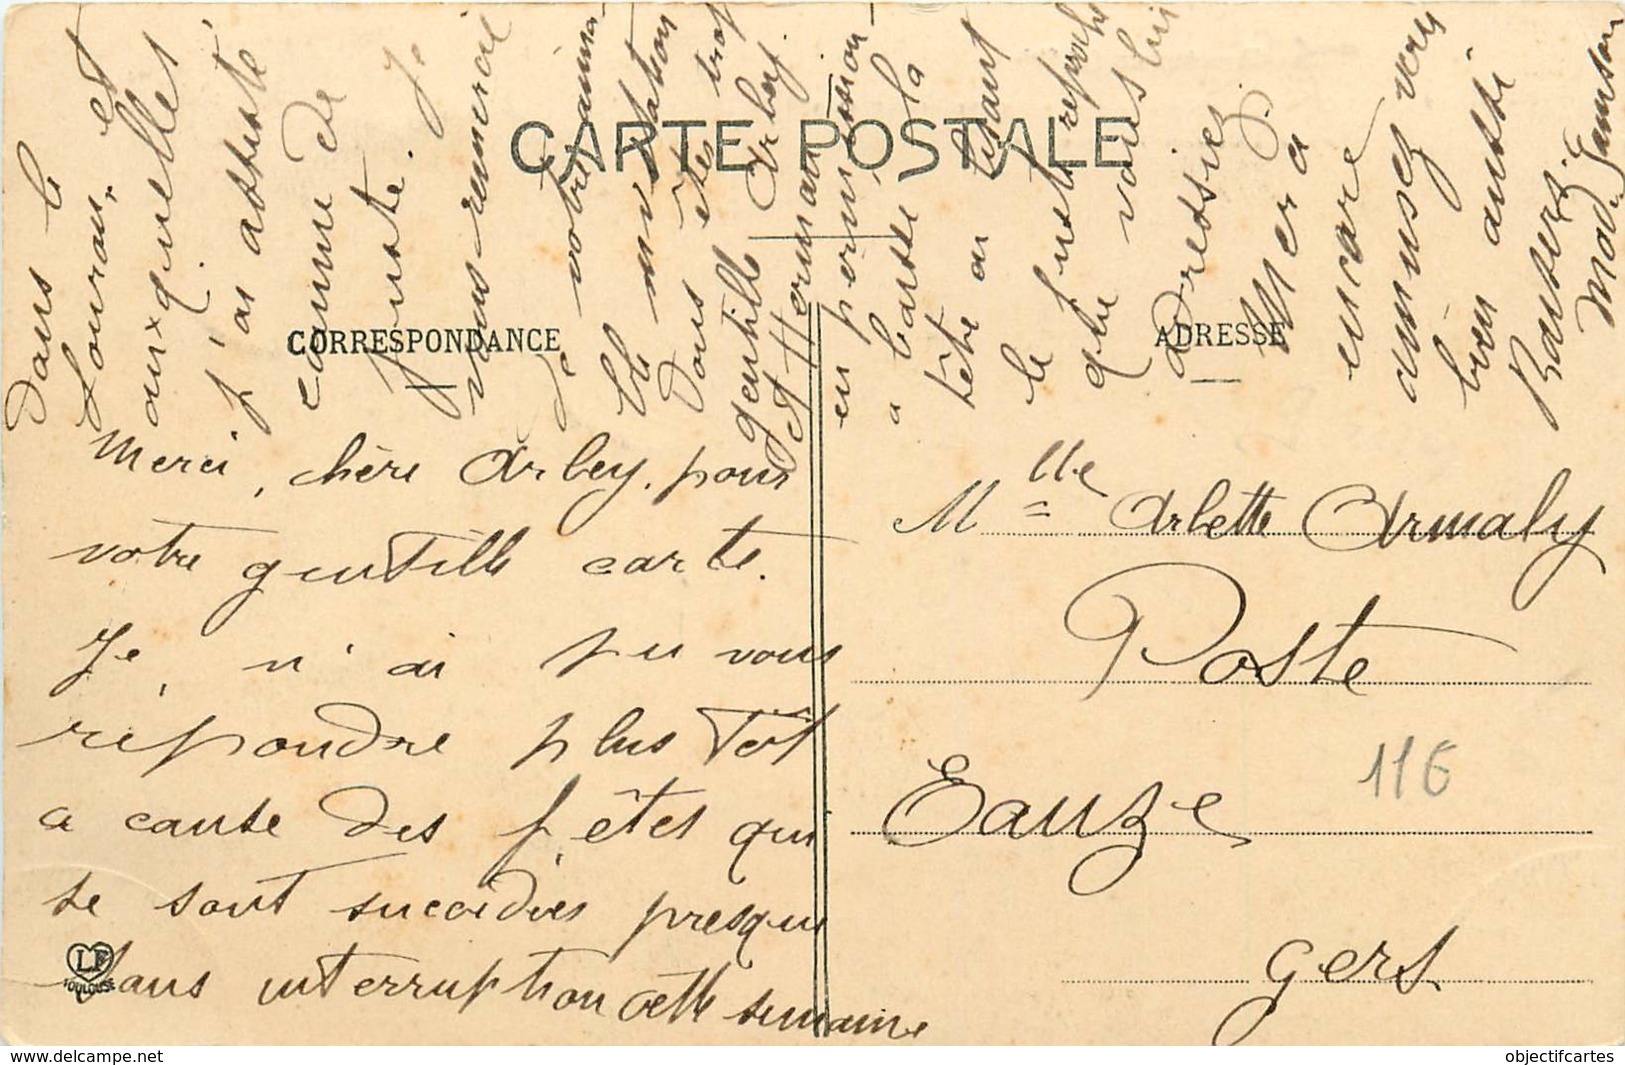 CARTE POSTALE
CORRESPONDANCE
ADRESSE
Merci, chère Arbey, pour
votre gentille carte.
Je n'ai pu vous
répondre plus tôt
a cause des fêtes qui
se sont succédées presque
sans interruption cette semaine
dans le
Lauran, et
auxquelles
j'ai assisté
comme de
juste. Je
vous remercie
de votre aima-
ble invitation
Vous êtes trop
gentille Arbey.
Germaine
en permission
a baissé la
tête en lisant
le juste reproche
que vous lui
adressiez.
Merci
encore
amusez vous
bien aussi
Baisers
Mad. Sanson
Mlle Arlette Armaly
Poste
Eauze
Gers
11€
LF
TOULOUSE
https://www.delcampe.net
objectifcartes